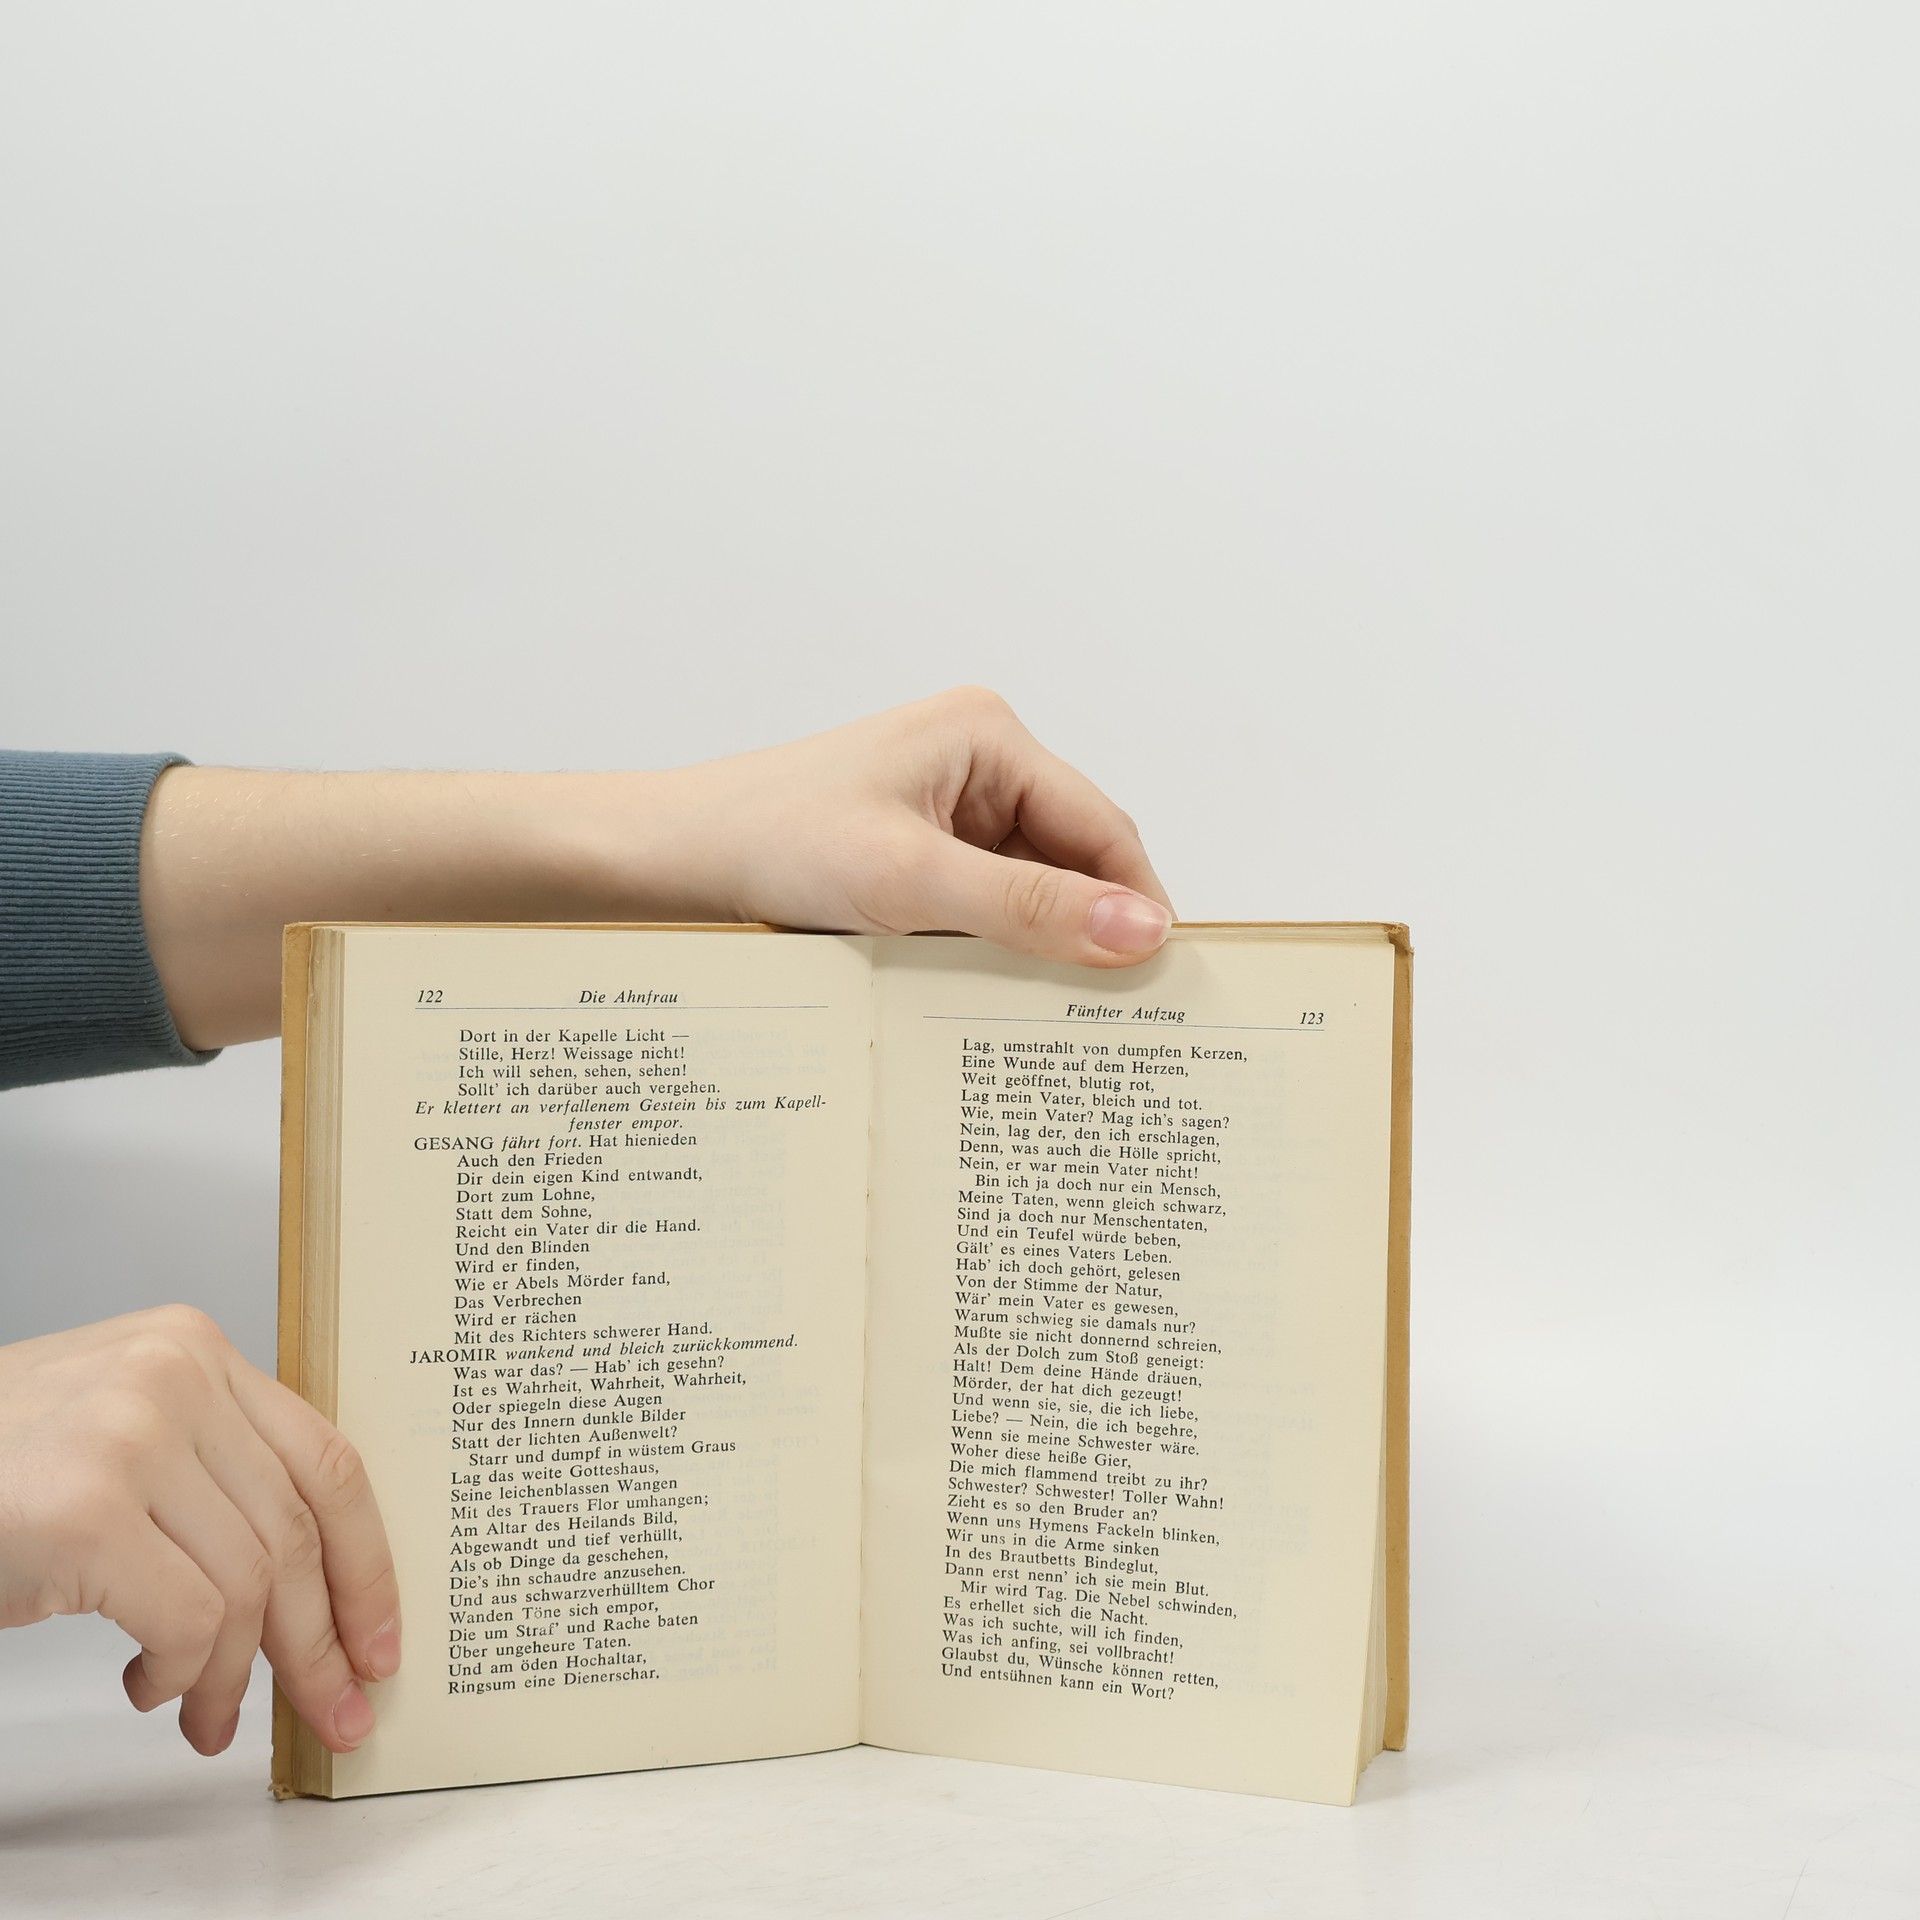 122 Die Ahnfrau
Dort in der Kapelle Licht —
Stille, Herz! Weissage nicht!
Ich will sehen, sehen, sehen!
Sollt' ich darüber auch vergehen.
Er klettert an verfallenem Gestein bis zum Kapell-
fenster empor.
GESANG fährt fort. Hat hienieden
Auch den Frieden
Dir dein eigen Kind entwandt,
Dort zum Lohne,
Statt dem Sohne,
Reicht ein Vater dir die Hand.
Und den Blinden
Wird er finden,
Wie er Abels Mörder fand,
Das Verbrechen
Wird er rächen
Mit des Richters schwerer Hand.
JAROMIR wankend und bleich zurückkommend.
Was war das? — Hab' ich gesehn?
Ist es Wahrheit, Wahrheit, Wahrheit,
Oder spiegeln diese Augen
Nur des Innern dunkle Bilder
Statt der lichten Außenwelt?
Starr und dumpf in wüstem Graus
Lag das weite Gotteshaus,
Seine leichenblassen Wangen
Mit des Trauers Flor umhangen;
Am Altar des Heilands Bild,
Abgewandt und tief verhüllt,
Als ob Dinge da geschehen,
Die's ihn schaudre anzusehen.
Und aus schwarzverhülltem Chor
Wanden Töne sich empor,
Die um Straf' und Rache baten
Über ungeheure Taten.
Und am öden Hochaltar,
Ringsum eine Dienerschar.
Fünfter Aufzug 123
Lag, umstrahlt von dumpfen Kerzen,
Eine Wunde auf dem Herzen,
Weit geöffnet, blutig rot,
Lag mein Vater, bleich und tot.
Wie, mein Vater? Mag ich's sagen?
Nein, lag der, den ich erschlagen,
Denn, was auch die Hölle spricht,
Nein, er war mein Vater nicht!
Bin ich ja doch nur ein Mensch,
Meine Taten, wenn gleich schwarz,
Sind ja doch nur Menschentaten,
Und ein Teufel würde beben,
Gält' es eines Vaters Leben.
Hab' ich doch gehört, gelesen
Von der Stimme der Natur,
Wär' mein Vater es gewesen,
Warum schwieg sie damals nur?
Mußte sie nicht donnernd schreien,
Als der Dolch zum Stoß geneigt:
Halt! Dem deine Hände dräuen,
Mörder, der hat dich gezeugt!
Und wenn sie, sie, die ich liebe,
Liebe? — Nein, die ich begehre,
Wenn sie meine Schwester wäre.
Woher diese heiße Gier,
Die mich flammend treibt zu ihr?
Schwester? Schwester! Toller Wahn!
Zieht es so den Bruder an?
Wenn uns Hymens Fackeln blinken,
Wir uns in die Arme sinken
In des Brautbetts Bindeglut,
Dann erst nenn' ich sie mein Blut.
Mir wird Tag. Die Nebel schwinden,
Es erhellet sich die Nacht.
Was ich suchte, will ich finden,
Was ich anfing, sei vollbracht!
Glaubst du, Wünsche können retten,
Und entsühnen kann ein Wort?